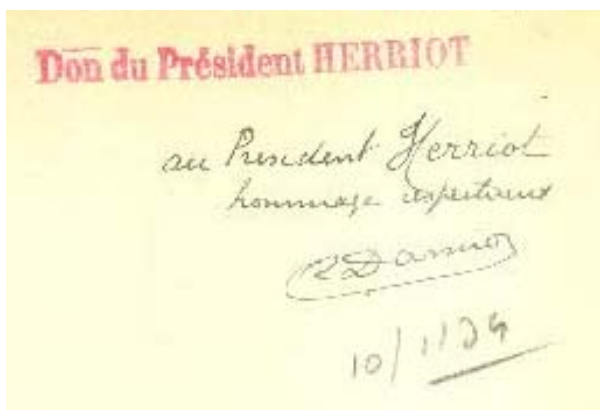 Don du Président HERRIOT
au President Herriot
hommage respectueux
10/1/34